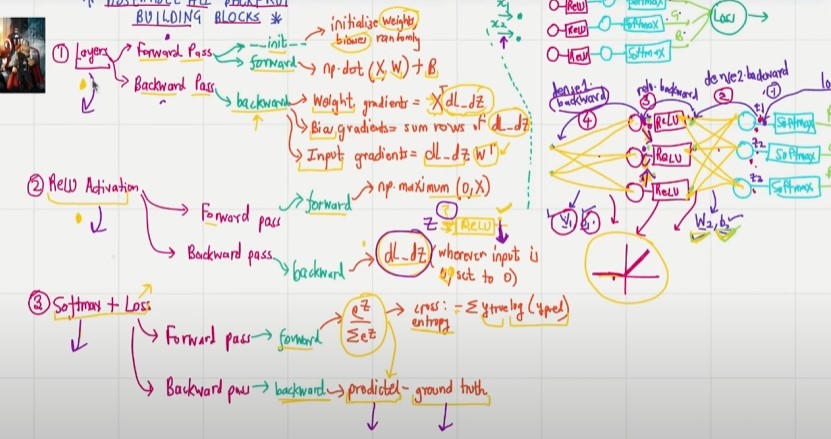 BUILDING BLOCKS *
① Layers
Forward Pass
--init--
initialise weights
biases randomly
forward
np.dot (X, W) + B
Backward Pass
backward
Weight gradients = X^T dL_dZ
Bias gradients = sum rows of dL_dZ
Input gradients = dL_dZ W^T
② ReLU Activation
Forward pass
forward
np.maximum (0, X)
Z
?
ReLU
Backward pass
backward
dL_dZ (wherever input is
0, set to 0)
③ Softmax + Loss
Forward pass
forward
e^Z
Σe^Z
cross:
entropy
= - Σ ytrue log (ypred)
Backward pass
backward
predicted - ground truth
x2
ReLU
ReLU
ReLU
Softmax
Softmax
Loss
dense1.
backward
relu.backward
dense2.backward
④
③
②
①
ReLU
ReLU
ReLU
z1
z2
z3
Softmax
Softmax
Softmax
W2, b2